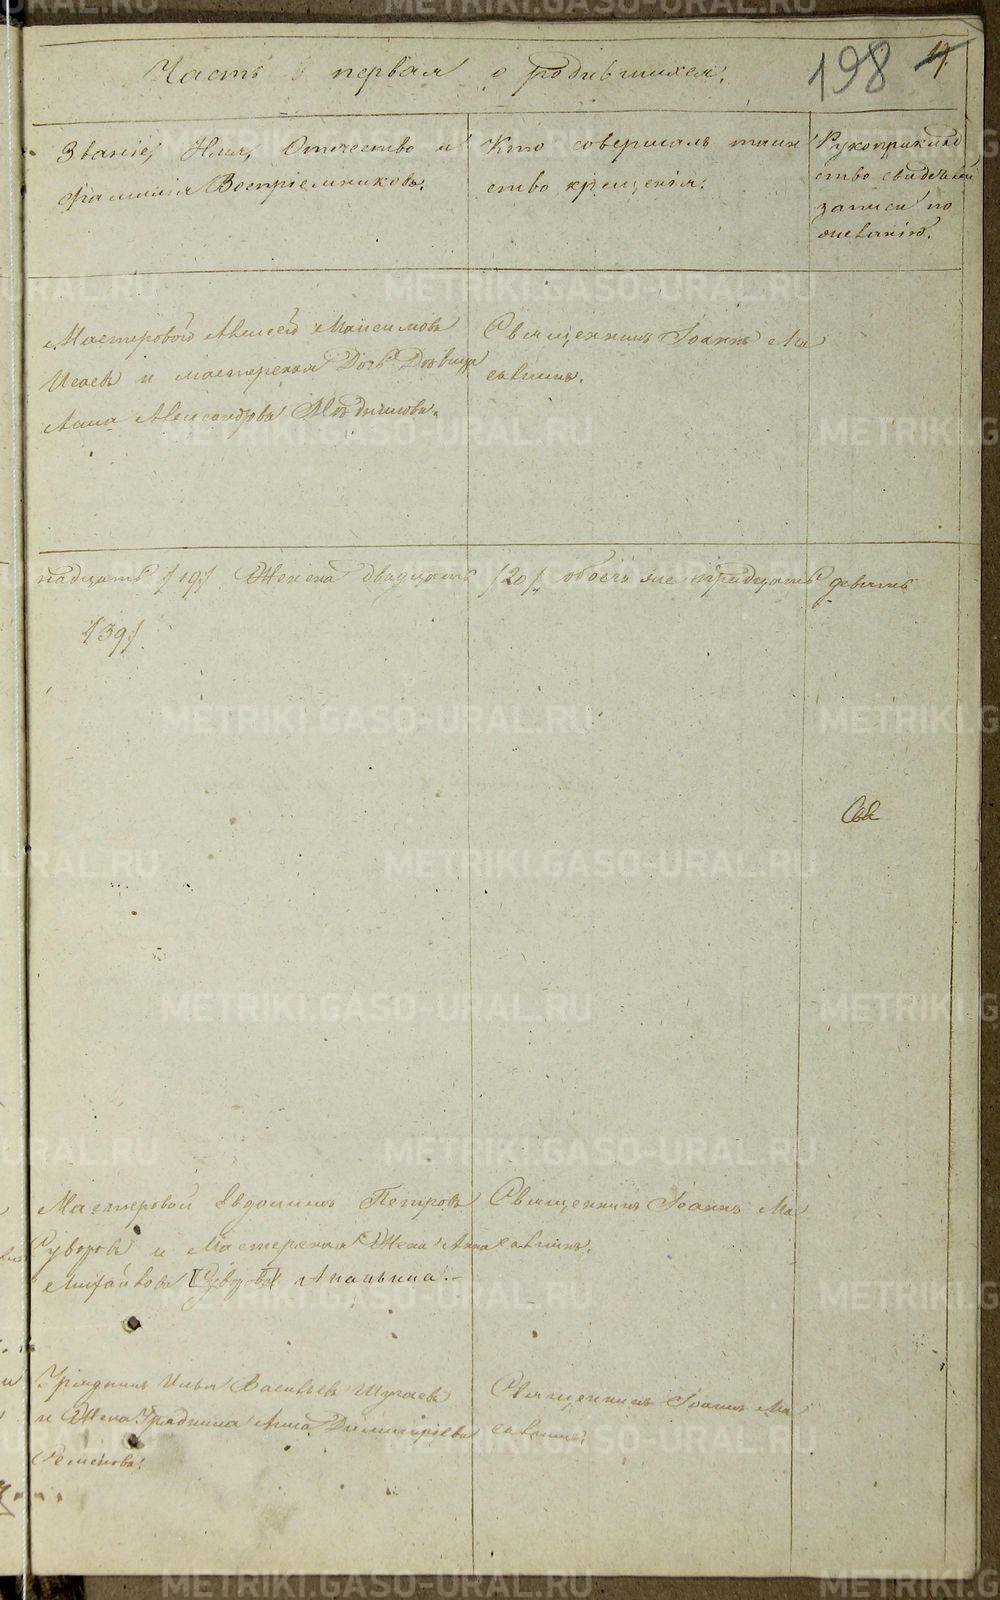 Часть первая о родившихся.
198 4
Званіе, Имя, Отчество и
фамилія Воспріемниковъ.
Кто совершалъ таин
ство крещенія.
Рукоприклад
ство свидѣтелей
записи по
желанію.
Мастеровой Алексей Максимовъ
Исаевъ и мастерская Дочь Дѣвица
Анна Александрова
Священникъ Іоаннъ Ма
надцать /19/ Женска двадцать /20/ обоего же тридцать девять
/39/.
Мастеровой Евдокимъ Петровъ
Суворовъ и Мастерская Жена Анна
Михайлова Суворова Ананьина.
Священникъ Іоаннъ Ма
Урядникъ Илья Васильевъ Шугаевъ
и Жена Урядника Анна Димитріева
Семенова.
Священникъ Іоаннъ Ма
METRIKI.GASO-URAL.RU